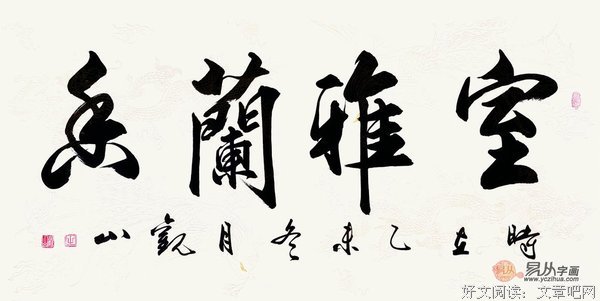 室雅蘭香
時在乙未冬月觀山
易从字画
www.yczihua.com
好文阅读：文章吧网